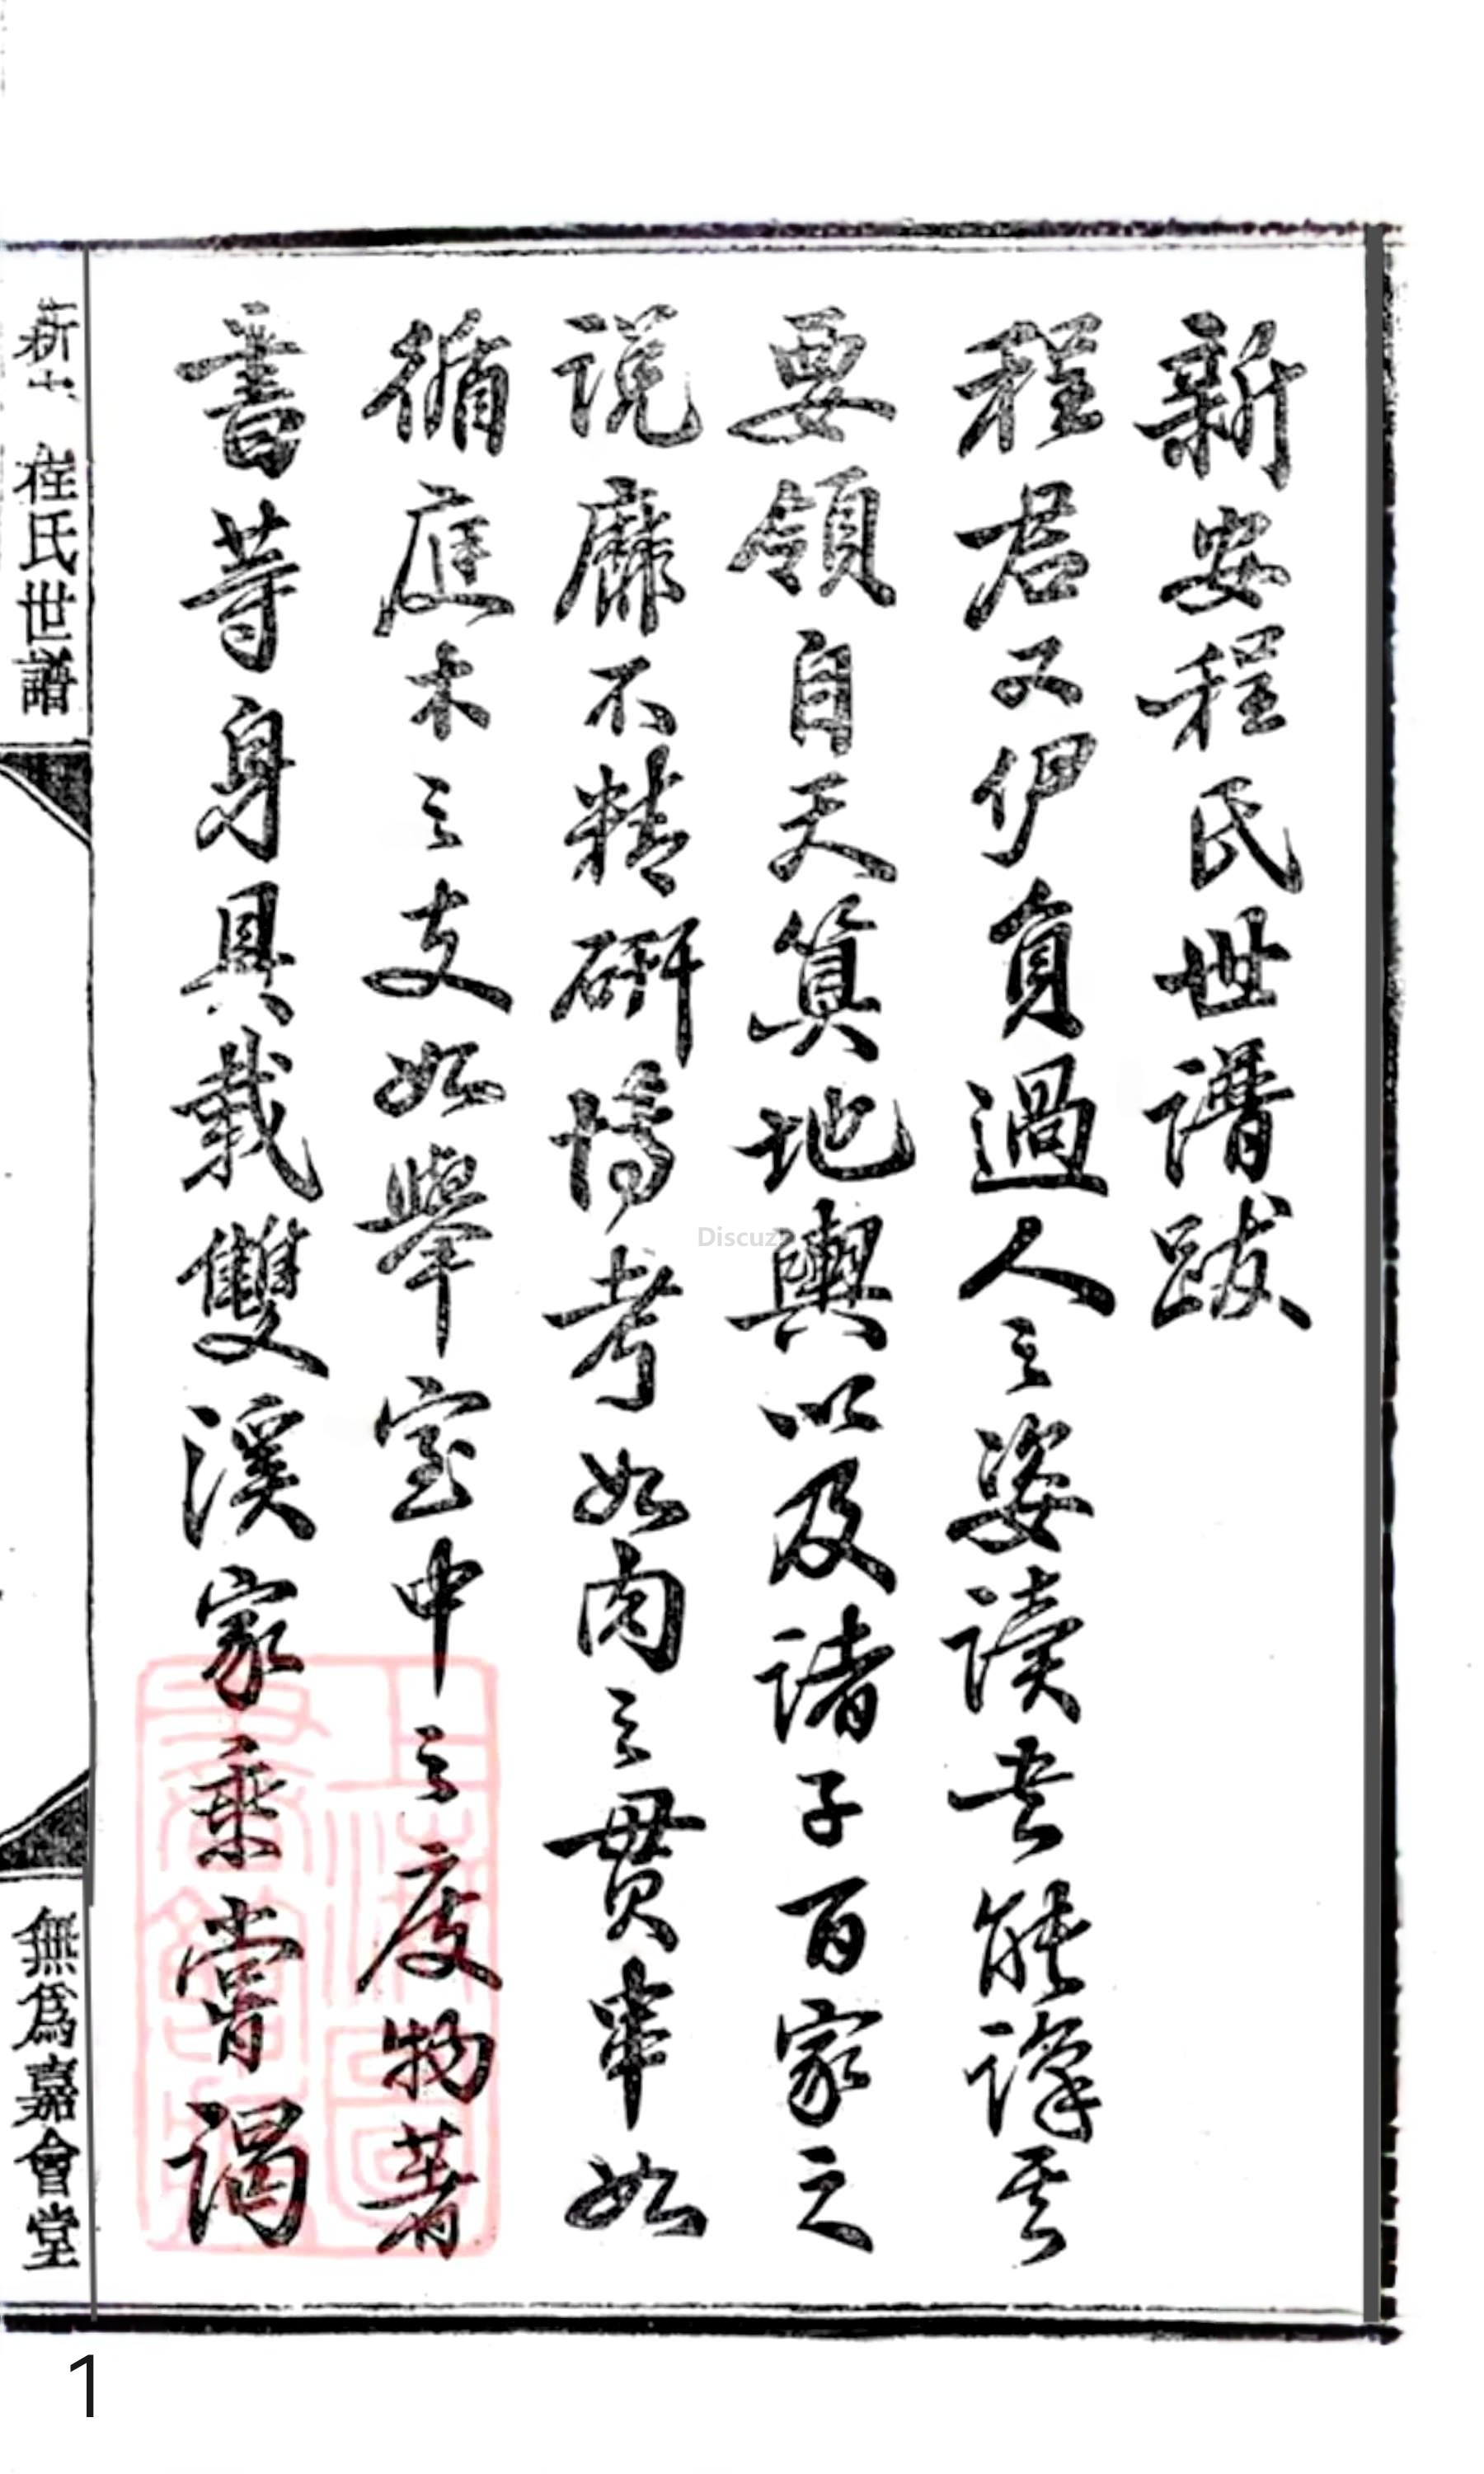 新安程氏世譜跋
程君又伊負過人之姿讀書能擇其
要領自天算地輿以及諸子百家之
説靡不精研博考如肉之貫串如
循庭木之支如舉室中之度物著
書等身具載雙溪家乘嘗謁
新安程氏世譜
無爲嘉會堂
上海圖書館藏
Discuz
1